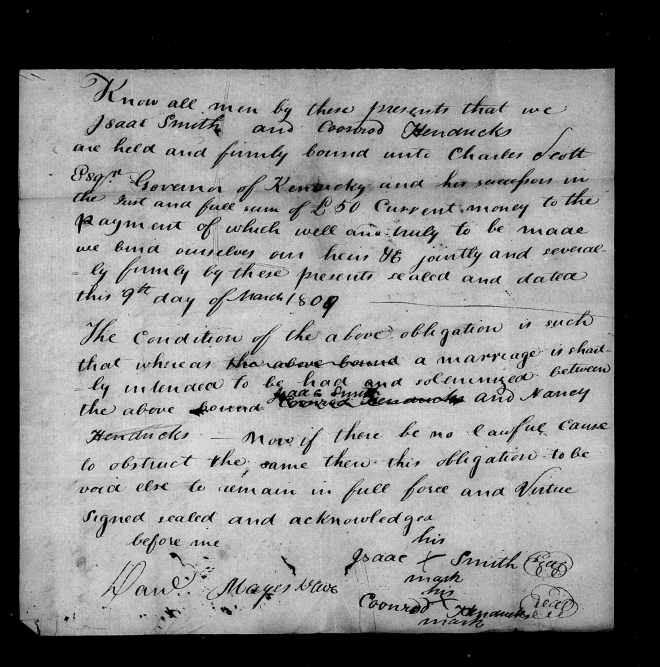 Know all men by these presents that we
Isaac Smith and Coonrod Hendricks
are held and firmly bound unto Charles Scott
Esqr. Governor of Kentucky and his successors in
the Just and full sum of £50 Current money to the
payment of which well and truly to be made
we bind ourselves our heirs &c jointly and several
-ly firmly by these presents sealed and dated
this 9th day of March 1809
The Condition of the above obligation is such
that whereas the above bound a marriage is short
-ly intended to be had and solemnized between
Isaac Smith
the above bound Coonrod Hendricks and Nancy
Hendricks — Now if there be no lawful Cause
to obstruct the same then this obligation to be
void else to remain in full force and Virtue
Signed sealed and acknowledged
before me
his
Isaac X Smith Seal
mark
his
Coonrod X Hendricks Seal
mark
Danl. Mayes